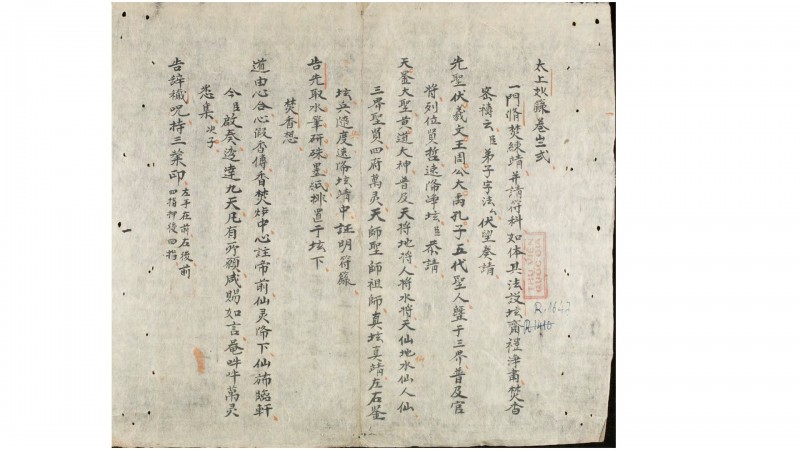 太上妙籙卷之弍
一門脩焚練請并請符料如体其法設坛齋禮淨肅焚香
密禱云臣弟子字法厶伏望奏請
先聖伏羲文王周公大禹孔子五代聖人曁于三界普及官
将列位賢哲速降凈坛臣恭請
天釜大聖古道大神普及天将地将人将水将天仙地水仙人仙
三界聖賢四府萬灵天師聖師祖師真坛真靖左右鉴
坛兵随度速降坛靖中証明符籙
告先取水畢研硃墨紙排置于坛下
焚香想
道由心合心假香傳香焚炉中心註帝前仙灵降下仙斾臨軒
今臣啟奏逵達九天凡有所願咸賜如言萬灵
悉集次子
告諱穢咒持三業印左手在前右後前
四指押後四指
R.1623
R.1410